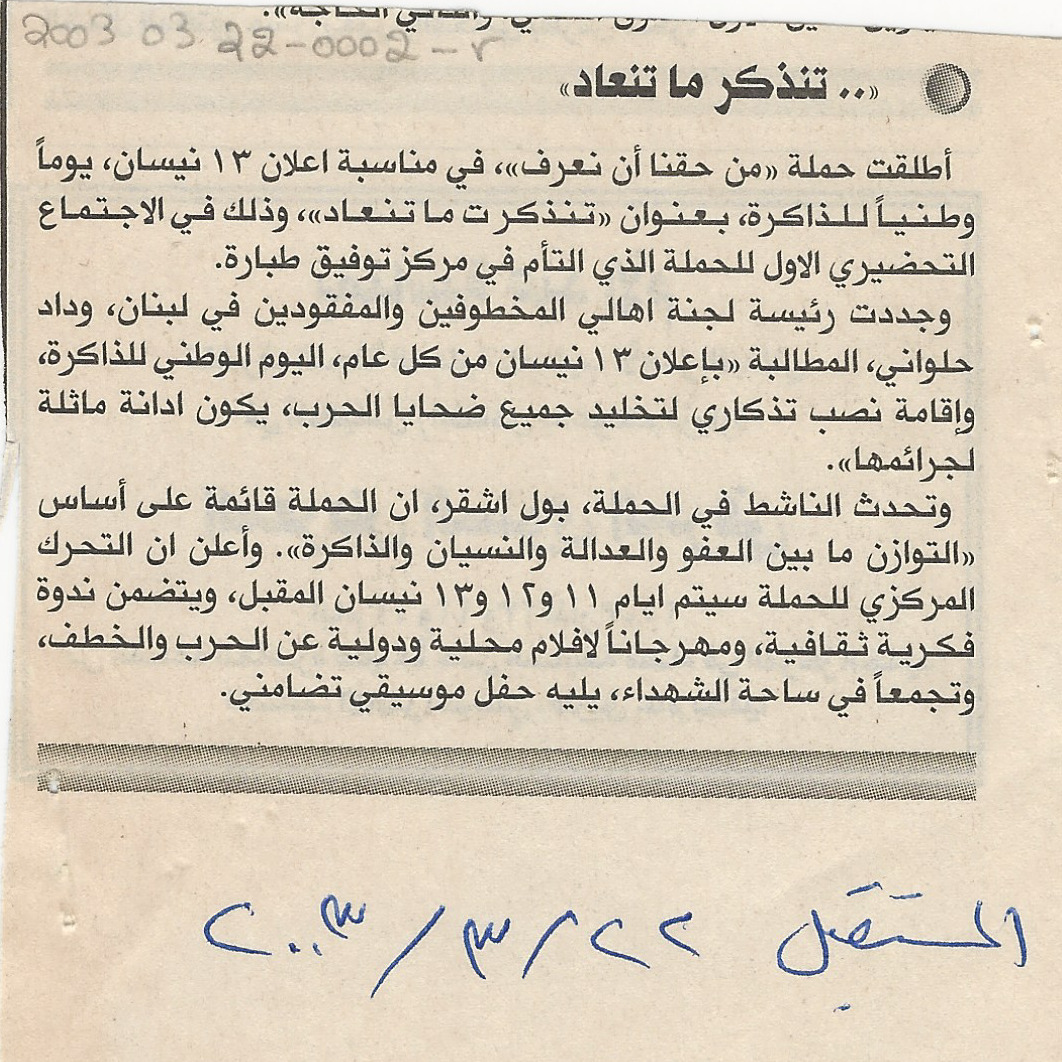 2003 03 22-0002-r
«.. تنذكر ما تنعاد»
أطلقت حملة «من حقنا أن نعرف»، في مناسبة اعلان ١٣ نيسان، يوماً
وطنياً للذاكرة، بعنوان «تنذكر ت ما تنعاد»، وذلك في الاجتماع
التحضيري الاول للحملة الذي التأم في مركز توفيق طبارة.
وجددت رئيسة لجنة اهالي المخطوفين والمفقودين في لبنان، وداد
حلواني، المطالبة «بإعلان ١٣ نيسان من كل عام، اليوم الوطني للذاكرة،
وإقامة نصب تذكاري لتخليد جميع ضحايا الحرب، يكون ادانة ماثلة
لجرائمها».
وتحدث الناشط في الحملة، بول اشقر، ان الحملة قائمة على أساس
«التوازن ما بين العفو والعدالة والنسيان والذاكرة». وأعلن ان التحرك
المركزي للحملة سيتم ايام ١١ و١٢ و١٣ نيسان المقبل، ويتضمن ندوة
فكرية ثقافية، ومهرجاناً لافلام محلية ودولية عن الحرب والخطف،
وتجمعاً في ساحة الشهداء، يليه حفل موسيقي تضامني.
المستقبل ٢٢/٣/٢٠٠٣